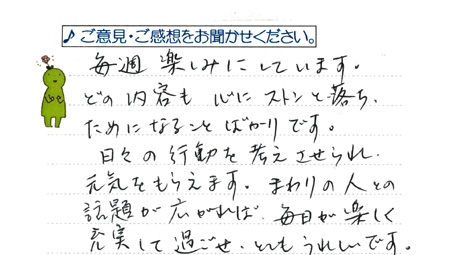 ♪ ご意見・ご感想をお聞かせください。
毎週楽しみにしています。
どの内容も心にストンと落ち、
ためになることばかりです。
日々の行動を考えさせられ、
元気をもらえます。まわりの人との
話題が広がれば、毎日が楽しく
充実して過ごせ、とてもうれしいです。